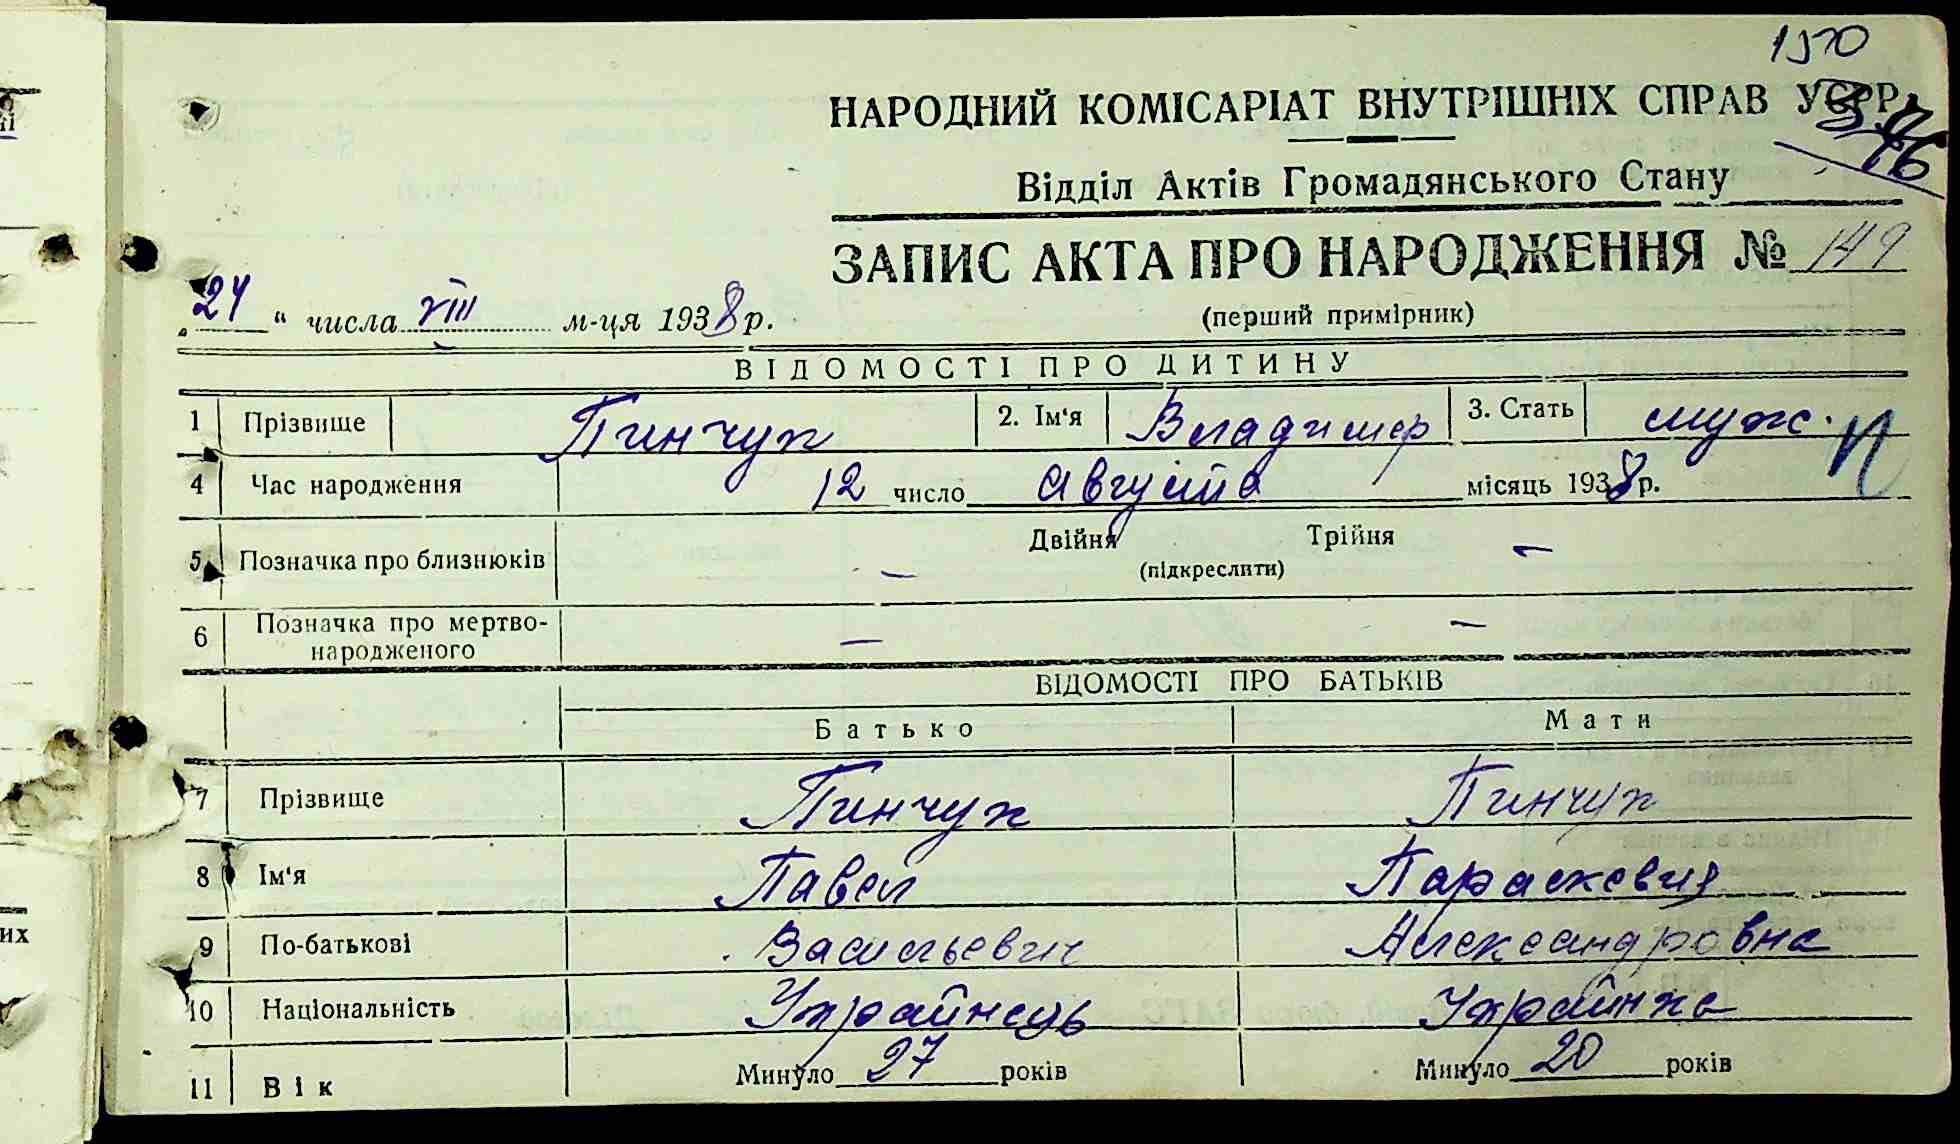 150
НАРОДНИЙ КОМІСАРІАТ ВНУТРІШНІХ СПРАВ УСРР
Відділ Актів Громадянського Стану
ЗАПИС АКТА ПРО НАРОДЖЕННЯ № 149
(перший примірник)
„24“ числа VIII м-ця 1938 р.
ВІДОМОСТІ ПРО ДИТИНУ
1 Прізвище Пинчук 2. Ім‘я Владимер 3. Стать муж.
4 Час народження 12 число Августа місяць 1938 р.
5 Позначка про близнюків — Двійня Трійня —
(підкреслити)
6 Позначка про мертво-
народженого — —
ВІДОМОСТІ ПРО БАТЬКІВ
Батько Мати
7 Прізвище Пинчук Пинчук
8 Ім‘я Павел Параскевия
9 По-батькові Васильевич Александровна
10 Національність Украйнець Украинка
11 Вік Минуло 27 років Минуло 20 років
их